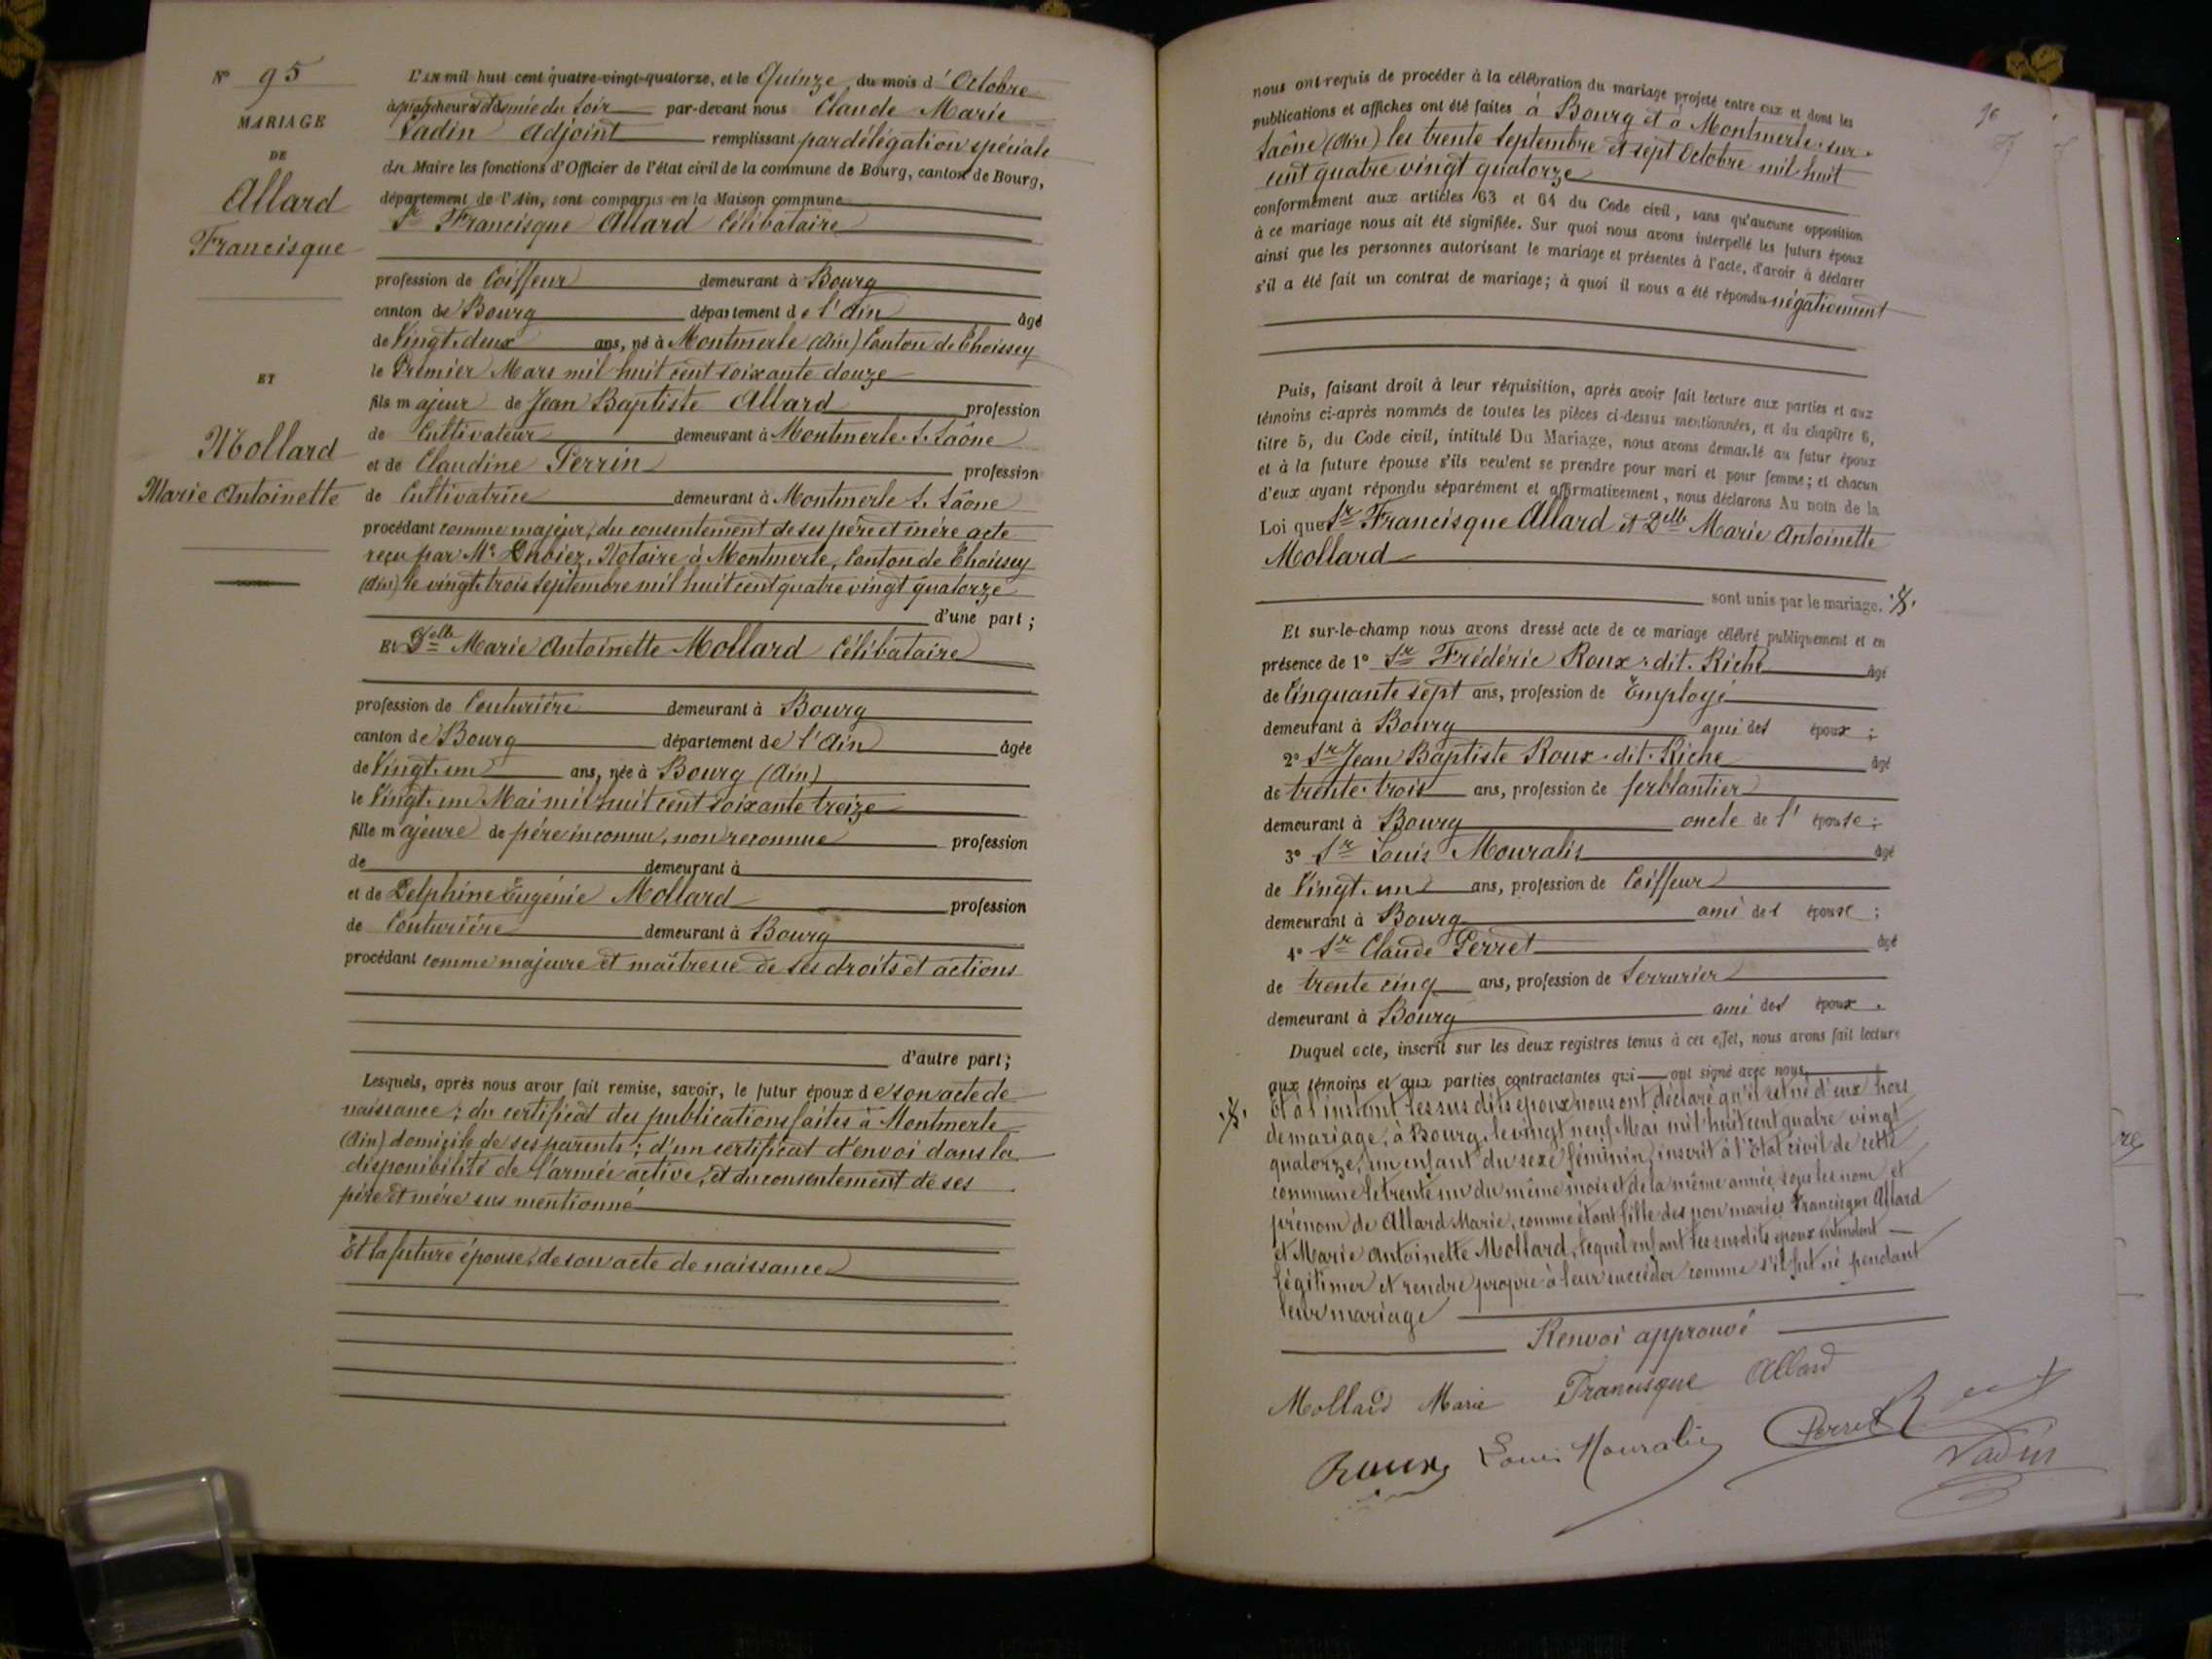 N° 95
MARIAGE
DE
Allard
Francisque
ET
Mollard
Marie Antoinette
L'an mil huit cent quatre-vingt-quatorze, et le Quinze du mois d'Octobre
à heures du soir par-devant nous Claude Marie
Vadin adjoint remplissant par délégation spéciale
du Maire les fonctions d'Officier de l'état civil de la commune de Bourg, canton de Bourg,
département de l'Ain, sont comparus en la Maison commune
Sr Francisque Allard Célibataire
profession de Coiffeur demeurant à Bourg
canton de Bourg département de l'Ain âgé
de Vingt-deux ans, né à Montmerle (Ain) Canton de Thoissey
le Premier Mars mil huit cent soixante douze
fils majeur de Jean Baptiste Allard profession
de Cultivateur demeurant à Montmerle s. Saône
et de Claudine Perrin profession
de Cultivatrice demeurant à Montmerle s. Saône
procédant comme majeur, du consentement de ses père et mère acte
reçu par Me Notaire à Montmerle, Canton de Thoissey
(Ain) le vingt-trois Septembre mil huit cent quatre vingt quatorze
d'une part;
Et Delle Marie Antoinette Mollard Célibataire
profession de Couturière demeurant à Bourg
canton de Bourg département de l'Ain âgée
de Vingt-un ans, née à Bourg (Ain)
le Vingt-un Mai mil huit cent soixante treize
fille majeure de père inconnu, non reconnue profession
de demeurant à
et de Delphine Eugénie Mollard profession
de Couturière demeurant à Bourg
procédant comme majeure et maîtresse de ses droits et actions
d'autre part;
Lesquels, après nous avoir fait remise, savoir, le futur époux de son acte de
naissance; du certificat des publications faites à Montmerle
(Ain) domicile de ses parents; d'un certificat d'envoi dans la
disponibilité de l'armée active, et du consentement de ses
père et mère sus mentionné
Et la future épouse, de son acte de naissance
nous ont requis de procéder à la célébration du mariage projeté entre eux et dont les
publications et affiches ont été faites à Bourg et à Montmerle-sur-
Saône (Ain) les trente Septembre et sept Octobre mil huit
cent quatre vingt quatorze
conformément aux articles 63 et 64 du Code civil, sans qu'aucune opposition
à ce mariage nous ait été signifiée. Sur quoi nous avons interpellé les futurs époux
ainsi que les personnes autorisant le mariage et présentes à l'acte, d'avoir à déclarer
s'il a été fait un contrat de mariage; à quoi il nous a été répondu négativement
Puis, faisant droit à leur réquisition, après avoir fait lecture aux parties et aux
témoins ci-après nommés de toutes les pièces ci-dessus mentionnées, et du chapitre 6,
titre 5, du Code civil, intitulé Du Mariage, nous avons demandé au futur époux
et à la future épouse s'ils veulent se prendre pour mari et pour femme; et chacun
d'eux ayant répondu séparément et affirmativement, nous déclarons Au nom de la
Loi que Sr Francisque Allard et Delle Marie Antoinette
Mollard
sont unis par le mariage.
Et sur-le-champ nous avons dressé acte de ce mariage célébré publiquement et en
présence de 1° Sr Frédéric Roux-dit-Riche âgé
de Cinquante sept ans, profession de Employé
demeurant à Bourg ami des époux;
2° Sr Jean Baptiste Roux-dit-Riche âgé
de trente-trois ans, profession de ferblantier
demeurant à Bourg oncle de l'épouse;
3° Sr Louis Mouralis âgé
de Vingt-un ans, profession de Coiffeur
demeurant à Bourg ami des époux;
4° Sr Claude Perret âgé
de trente cinq ans, profession de Serrurier
demeurant à Bourg ami des époux.
Duquel acte, inscrit sur les deux registres tenus à cet effet, nous avons fait lecture
aux témoins et aux parties contractantes qui ont signé avec nous.
Et à l'instant les sus dits époux nous ont déclaré qu'il est né d'eux hors
de mariage, à Bourg, le vingt neuf Mai mil huit cent quatre vingt
quatorze, un enfant du sexe féminin, inscrit à l'Etat civil de cette
commune le trente un du même mois et de la même année, sous les nom et
prénom de Allard Marie, comme étant fille des non mariés Francisque Allard
et Marie Antoinette Mollard, lequel enfant les susdits époux entendent
légitimer et rendre propre à leur succéder comme s'il fut né pendant
leur mariage
Renvoi approuvé
Mollard Marie Francisque Allard
Roux Louis Mouralis Perret
Vadin